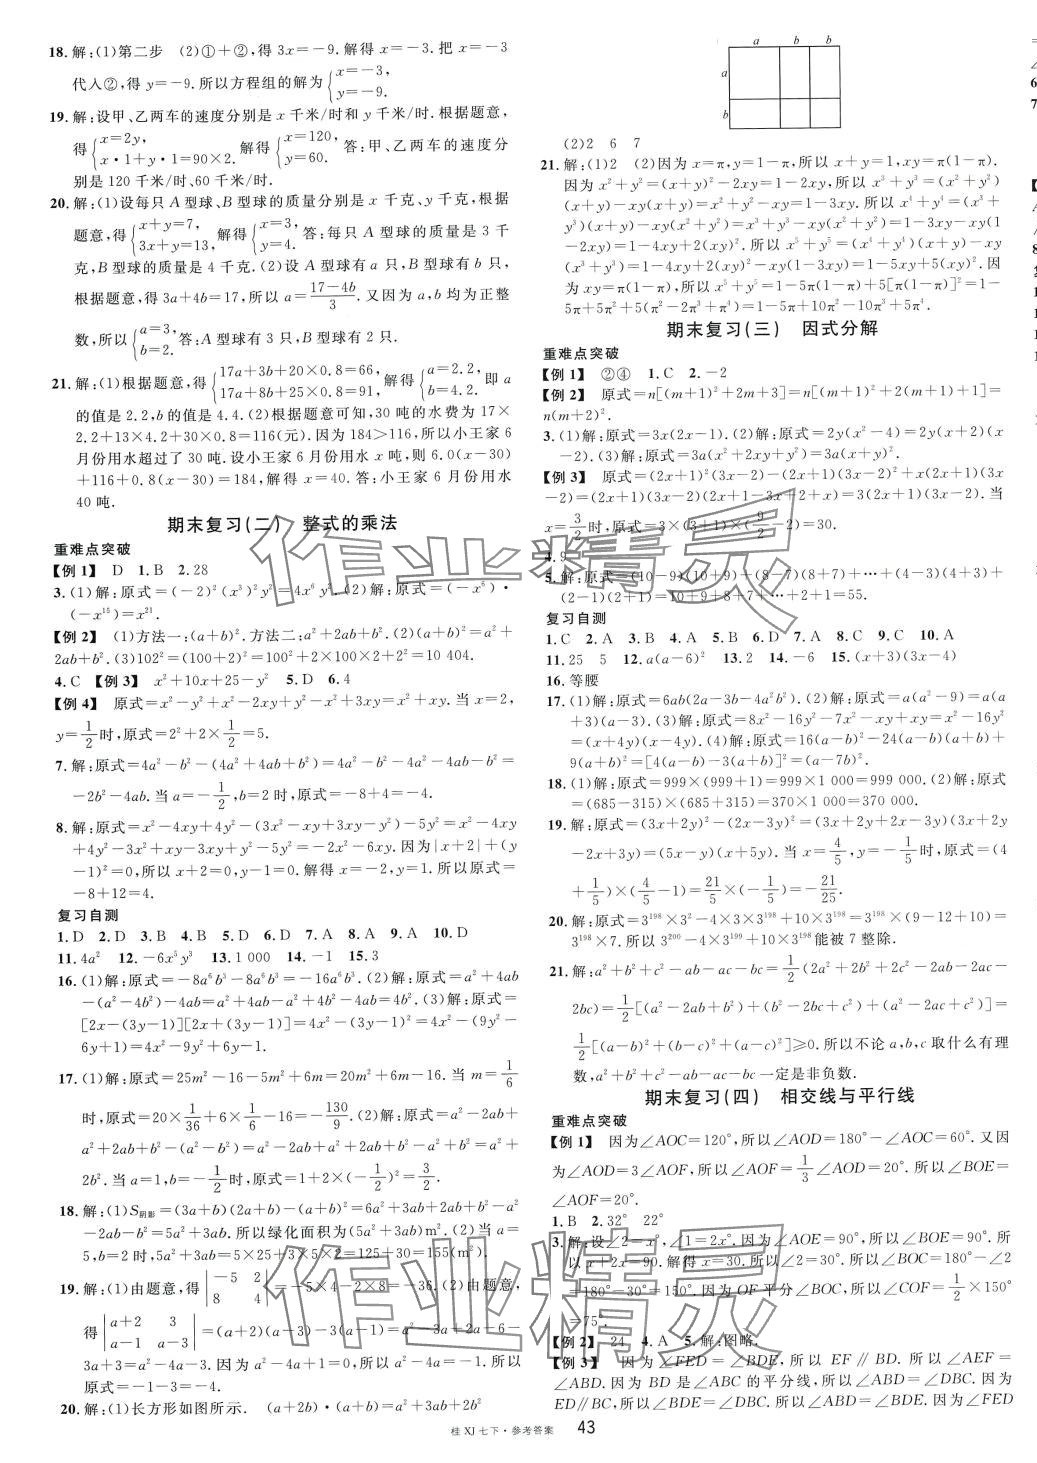 18. 解:(1)第二步 (2)①+②,得 3x=-9. 解得 x=-3. 把 x=-3
代入②,得 y=-9. 所以方程组的解为{x=-3, y=-9.
19. 解:设甲、乙两车的速度分别是 x 千米/时和 y 千米/时. 根据题意,
得{x=2y, x·1+y·1=90×2. 解得{x=120, y=60. 答:甲、乙两车的速度分
别是 120 千米/时、60 千米/时.
20. 解:(1)设每只 A 型球、B 型球的质量分别是 x 千克、y 千克,根据
题意,得{x+y=7, 3x+y=13, 解得{x=3, y=4. 答:每只 A 型球的质量是 3 千
克,B 型球的质量是 4 千克. (2)设 A 型球有 a 只,B 型球有 b 只,
根据题意,得 3a+4b=17,所以 a=(17-4b)/3. 又因为 a,b 均为正整
数,所以{a=3, b=2. 答:A 型球有 3 只,B 型球有 2 只.
21. 解:(1)根据题意,得{17a+3b+20×0.8=66, 17a+8b+25×0.8=91, 解得{a=2.2, b=4.2. 即 a
的值是 2.2,b 的值是 4.4. (2)根据题意可知,30 吨的水费为 17×
2.2+13×4.2+30×0.8=116(元). 因为 184>116,所以小王家 6
月份用水超过了 30 吨. 设小王家 6 月份用水 x 吨,则 6.0(x-30)
+116+0.8(x-30)=184,解得 x=40. 答:小王家 6 月份用水
40 吨.
期末复习(二) 整式的乘法
重难点突破
【例 1】 D 1. B 2. 28
3. (1)解:原式=(-2)²(x³)²y²=4x⁶y². (2)解:原式=(-x⁶)·
(-x¹⁵)=x²¹.
【例 2】 (1)方法一:(a+b)². 方法二:a²+2ab+b². (2)(a+b)²=a²+
2ab+b². (3)102²=(100+2)²=100²+2×100×2+2²=10 404.
4. C 【例 3】 x²+10x+25-y² 5. D 6. 4
【例 4】 原式=x²-y²+x²-2xy+y²-x²+3xy=x²+xy. 当 x=2,
y=1/2时,原式=2²+2×1/2=5.
7. 解:原式=4a²-b²-(4a²+4ab+b²)=4a²-b²-4a²-4ab-b²=
-2b²-4ab. 当 a=-1/2,b=2 时,原式=-8+4=-4.
8. 解:原式=x²-4xy+4y²-(3x²-xy+3xy-y²)-5y²=x²-4xy
+4y²-3x²+xy-3xy+y²-5y²=-2x²-6xy. 因为|x+2|+(y
-1)²=0,所以 x+2=0,y-1=0. 解得 x=-2,y=1. 所以原式=
-8+12=4.
复习自测
1. D 2. D 3. B 4. B 5. D 6. D 7. A 8. A 9. A 10. D
11. 4a² 12. -6x⁵y³ 13. 1 000 14. -1 15. 3
16. (1)解:原式=-8a⁶b³-8a⁶b³=-16a⁶b³. (2)解:原式=a²+4ab
-(a²-4b²)-4ab=a²+4ab-a²+4b²-4ab=4b². (3)解:原式=
[2x-(3y-1)][2x+(3y-1)]=4x²-(3y-1)²=4x²-(9y²-
6y+1)=4x²-9y²+6y-1.
17. (1)解:原式=25m²-16-5m²+6m=20m²+6m-16. 当 m=1/6
时,原式=20×1/36+6×1/6-16=-130/9. (2)解:原式=a²-2ab+
a²+2ab+b²-(a²-b²)=a²-2ab+a²+2ab+b²-a²+b²=a²+
2b². 当 a=1,b=-1/2时,原式=1+2×(-1/2)²=3/2.
18. 解:(1)S阴影=(3a+b)(2a+b)-(a+b)²=6a²+3ab+2ab+b²-a²
-2ab-b²=5a²+3ab. 所以绿化面积为(5a²+3ab)m². (2)当 a=
5,b=2 时,5a²+3ab=5×25+3×5×2=125+30=155(m²).
19. 解:(1)由题意,得|-5 2; 8 4|=-5×4-2×8=-36. (2)由题意,
得|a+2 3; a-1 a-3|=(a+2)(a-3)-3(a-1)=a²-3a+2a-6-
3a+3=a²-4a-3. 因为 a²-4a+1=0,所以 a²-4a=-1. 所以
原式=-1-3=-4.
20. 解:(1)长方形如图所示. (a+2b)·(a+b)=a²+3ab+2b²
a b b
a
b
(2)2 6 7
21. 解:(1)2 (2)因为 x=π,y=1-π,所以 x+y=1,xy=π(1-π).
因为 x²+y²=(x+y)²-2xy=1-2xy,所以 x³+y³=(x²+y²)
(x+y)-xy(x+y)=x²+y²-xy=1-3xy. 所以 x⁴+y⁴=(x³+
y³)(x+y)-xy(x²+y²)=x³+y³-xy(x²+y²)=1-3xy-xy(1
-2xy)=1-4xy+2(xy)². 所以 x⁵+y⁵=(x⁴+y⁴)(x+y)-xy
(x³+y³)=1-4xy+2(xy)²-xy(1-3xy)=1-5xy+5(xy)². 因
为 xy=π(1-π),所以 x⁵+y⁵=1-5π(1-π)+5[π(1-π)]²=1-
5π+5π²+5(π²-2π³+π⁴)=1-5π+10π²-10π³+5π⁴.
期末复习(三) 因式分解
重难点突破
【例 1】 ②④ 1. C 2. -2
【例 2】 原式=n[(m+1)²+2m+3]=n[(m+1)²+2(m+1)+1]=
n(m+2)².
3. (1)解:原式=3x(2x-1). (2)解:原式=2y(x²-4)=2y(x+2)(x
-2). (3)解:原式=3a(x²+2xy+y²)=3a(x+y)².
【例 3】 原式=(2x+1)²(3x-2)-(2x+1)(3x-2)²+x(2x+1)(3x
-2)=(2x+1)(3x-2)(2x+1-3x+2+x)=3(2x+1)(3x-2). 当
x=3/2时,原式=3×(3+1)×(9/2-2)=30.
4. 9
5. 解:原式=(10-9)(10+9)+(8-7)(8+7)+…+(4-3)(4+3)+
(2-1)(2+1)=10+9+8+7+…+2+1=55.
复习自测
1. C 2. A 3. B 4. A 5. B 6. D 7. A 8. C 9. C 10. A
11. 25 5 12. a(a-6)² 13. 2 14. -6 15. (x+3)(3x-4)
16. 等腰
17. (1)解:原式=6ab(2a-3b-4a²b²). (2)解:原式=a(a²-9)=a(a
+3)(a-3). (3)解:原式=8x²-16y²-7x²-xy+xy=x²-16y²
=(x+4y)(x-4y). (4)解:原式=16(a-b)²-24(a-b)(a+b)+
9(a+b)²=[4(a-b)-3(a+b)]²=(a-7b)².
18. (1)解:原式=999×(999+1)=999×1 000=999 000. (2)解:原式
=(685-315)×(685+315)=370×1 000=370 000.
19. 解:原式=(3x+2y)²-(2x-3y)²=(3x+2y+2x-3y)(3x+2y
-2x+3y)=(5x-y)(x+5y). 当 x=4/5,y=-1/5时,原式=(4
+1/5)×(4/5-1)=21/5×(-1/5)=-21/25.
20. 解:原式=3¹⁹⁸×3²-4×3×3¹⁹⁸+10×3¹⁹⁸=3¹⁹⁸×(9-12+10)=
3¹⁹⁸×7. 所以 3²⁰⁰-4×3¹⁹⁹+10×3¹⁹⁸能被 7 整除.
21. 解:a²+b²+c²-ab-ac-bc=1/2(2a²+2b²+2c²-2ab-2ac-
2bc)=1/2[(a²-2ab+b²)+(b²-2bc+c²)+(a²-2ac+c²)]=
1/2[(a-b)²+(b-c)²+(a-c)²]≥0. 所以不论 a,b,c 取什么有理
数,a²+b²+c²-ab-ac-bc 一定是非负数.
期末复习(四) 相交线与平行线
重难点突破
【例 1】 因为∠AOC=120°,所以∠AOD=180°-∠AOC=60°. 又因
为∠AOD=3∠AOF,所以∠AOF=1/3∠AOD=20°. 所以∠BOE=
∠AOF=20°.
1. B 2. 32° 22°
3. 解:设∠2=x°,∠1=2x°. 因为∠AOE=90°,所以∠BOE=90°. 所
以 x+2x=90. 解得 x=30. 所以∠2=30°. 所以∠BOC=180°-∠2
=180°-30°=150°. 因为 OF 平分∠BOC,所以∠COF=1/2×150°
=75°.
【例 2】 24 4. A 5. 解:图略.
【例 3】 因为∠FED=∠BDE,所以 EF∥BD. 所以∠AEF=
∠ABD. 因为 BD 是∠ABC 的平分线,所以∠ABD=∠DBC. 因为
ED∥BC,所以∠BDE=∠DBC. 所以∠AEF=∠DBC. 因为∠FED
桂 XJ 七下·参考答案 43
作业精灵
作业精灵